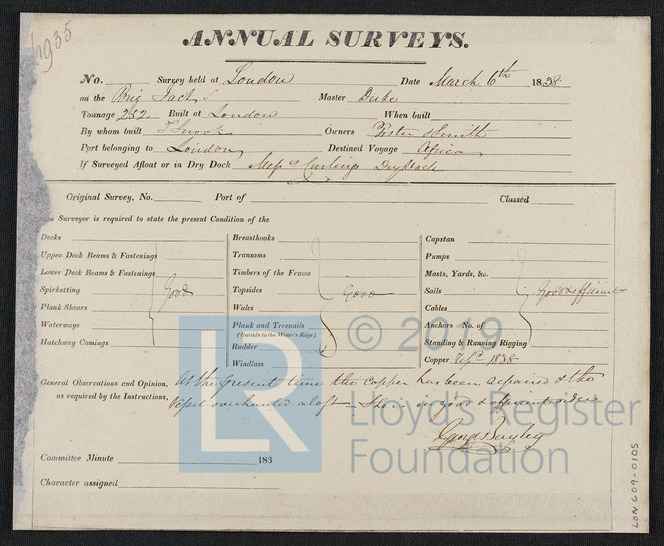 4935
ANNUAL SURVEYS.
No. Survey held at London Date March 6th 1838
on the Brig Jack Master Duke
Tonnage 252 Built at London When built
By whom built Owners & Smith
Port belonging to London Destined Voyage Africa
If Surveyed Afloat or in Dry Dock Messrs Curlings Dry Dock
Original Survey, No. Port of Classed
The Surveyor is required to state the present Condition of the
Decks
Upper Deck Beams & Fastenings
Lower Deck Beams & Fastenings
Spirketting Good
Plank Shears
Waterways
Hatchway Comings
Breasthooks
Transoms
Timbers of the Frame
Topsides Good
Wales
Plank and Treenails
(Outside to the Water's Edge)
Rudder
Windlass
Capstan
Pumps
Masts, Yards, &c.
Sails Good & efficient
Cables
Anchors No. of
Standing & Running Rigging
Copper 1838
General Observations and Opinion, At the present time the copper has been repaired & the
as required by the Instructions, Vessel overhauled aloft - She is in good & efficient order
George Bayley
Committee Minute 183
Character assigned
LR © 2019
Lloyd's Register
Foundation
LON 609-0105